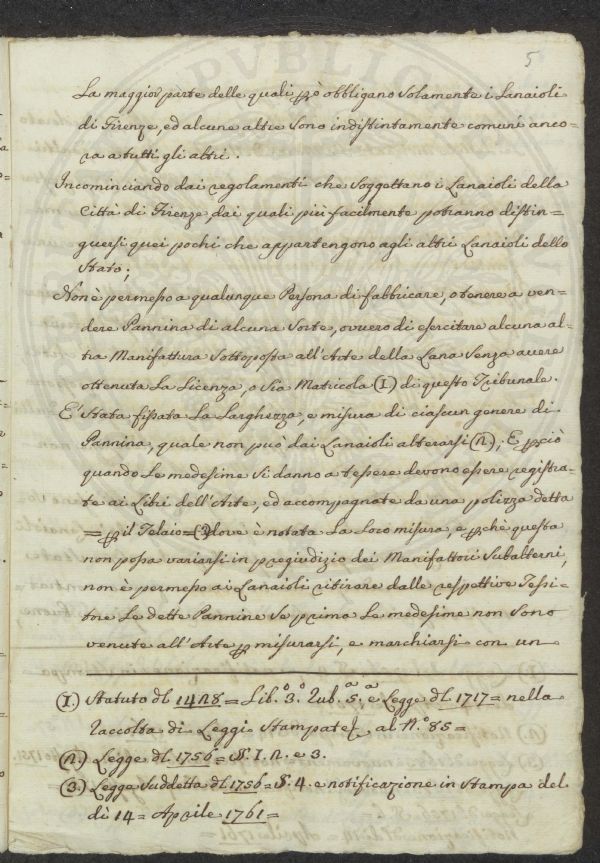 5
La maggior parte delle quali ꝑò obbligano solamente i Lanaioli
di Firenze, ed alcune altre sono indistintamente comuni anco=
ra a tutti gli altri.
Incominciando dai regolamenti che soggettano i Lanaioli della
Città di Firenze, dai quali più facilmente potranno distin=
guersi quei pochi che appartengono agli altri Lanaioli dello
Stato;
Non è permesso a qualunque Persona di fabbricare, o tenere a ven=
dere Pannina di alcuna Sorte, ovvero di esercitare alcuna al=
tra Manifattura Sottoposta all'Arte della Lana Senza avere
ottenuta La Licenza, o Sia Matricola (1) di questo Tribunale.
E' Stata fissata La Larghezza, e misura di ciascun genere di
Pannina, quale non può dai Lanaioli alterarsi (2); E ꝑciò
quando Le medesime Si danno a tessere devono essere registra=
te ai Libri dell'Arte, ed accompagnate da una polizza detta
= ꝑ il Telaio = (3) dove è notata La Loro misura, e ꝑchè questa
non possa variarsi in pregiudizio dei Manifattori Subalterni,
non è permesso ai Lanaioli ritirare dalle respettive Tessi=
tore Le dette Pannine Se prima Le medesime non Sono
venute all'Arte ꝑ misurarsi, e marchiarsi con un
(1.) Statuto dl 1428 = Lib.º 3.º Rub.ª 5.ª e Legge dl 1717 = nella
Raccolta di Leggi Stampate al N.º 85 =
(2.) Legge dl 1756 = §. 1. 2. e 3.
(3.) Legge Suddetta dl 1756 = §. 4. e notificazione in Stampa del
dì 14 = Aprile 1761 =
PUBLIC